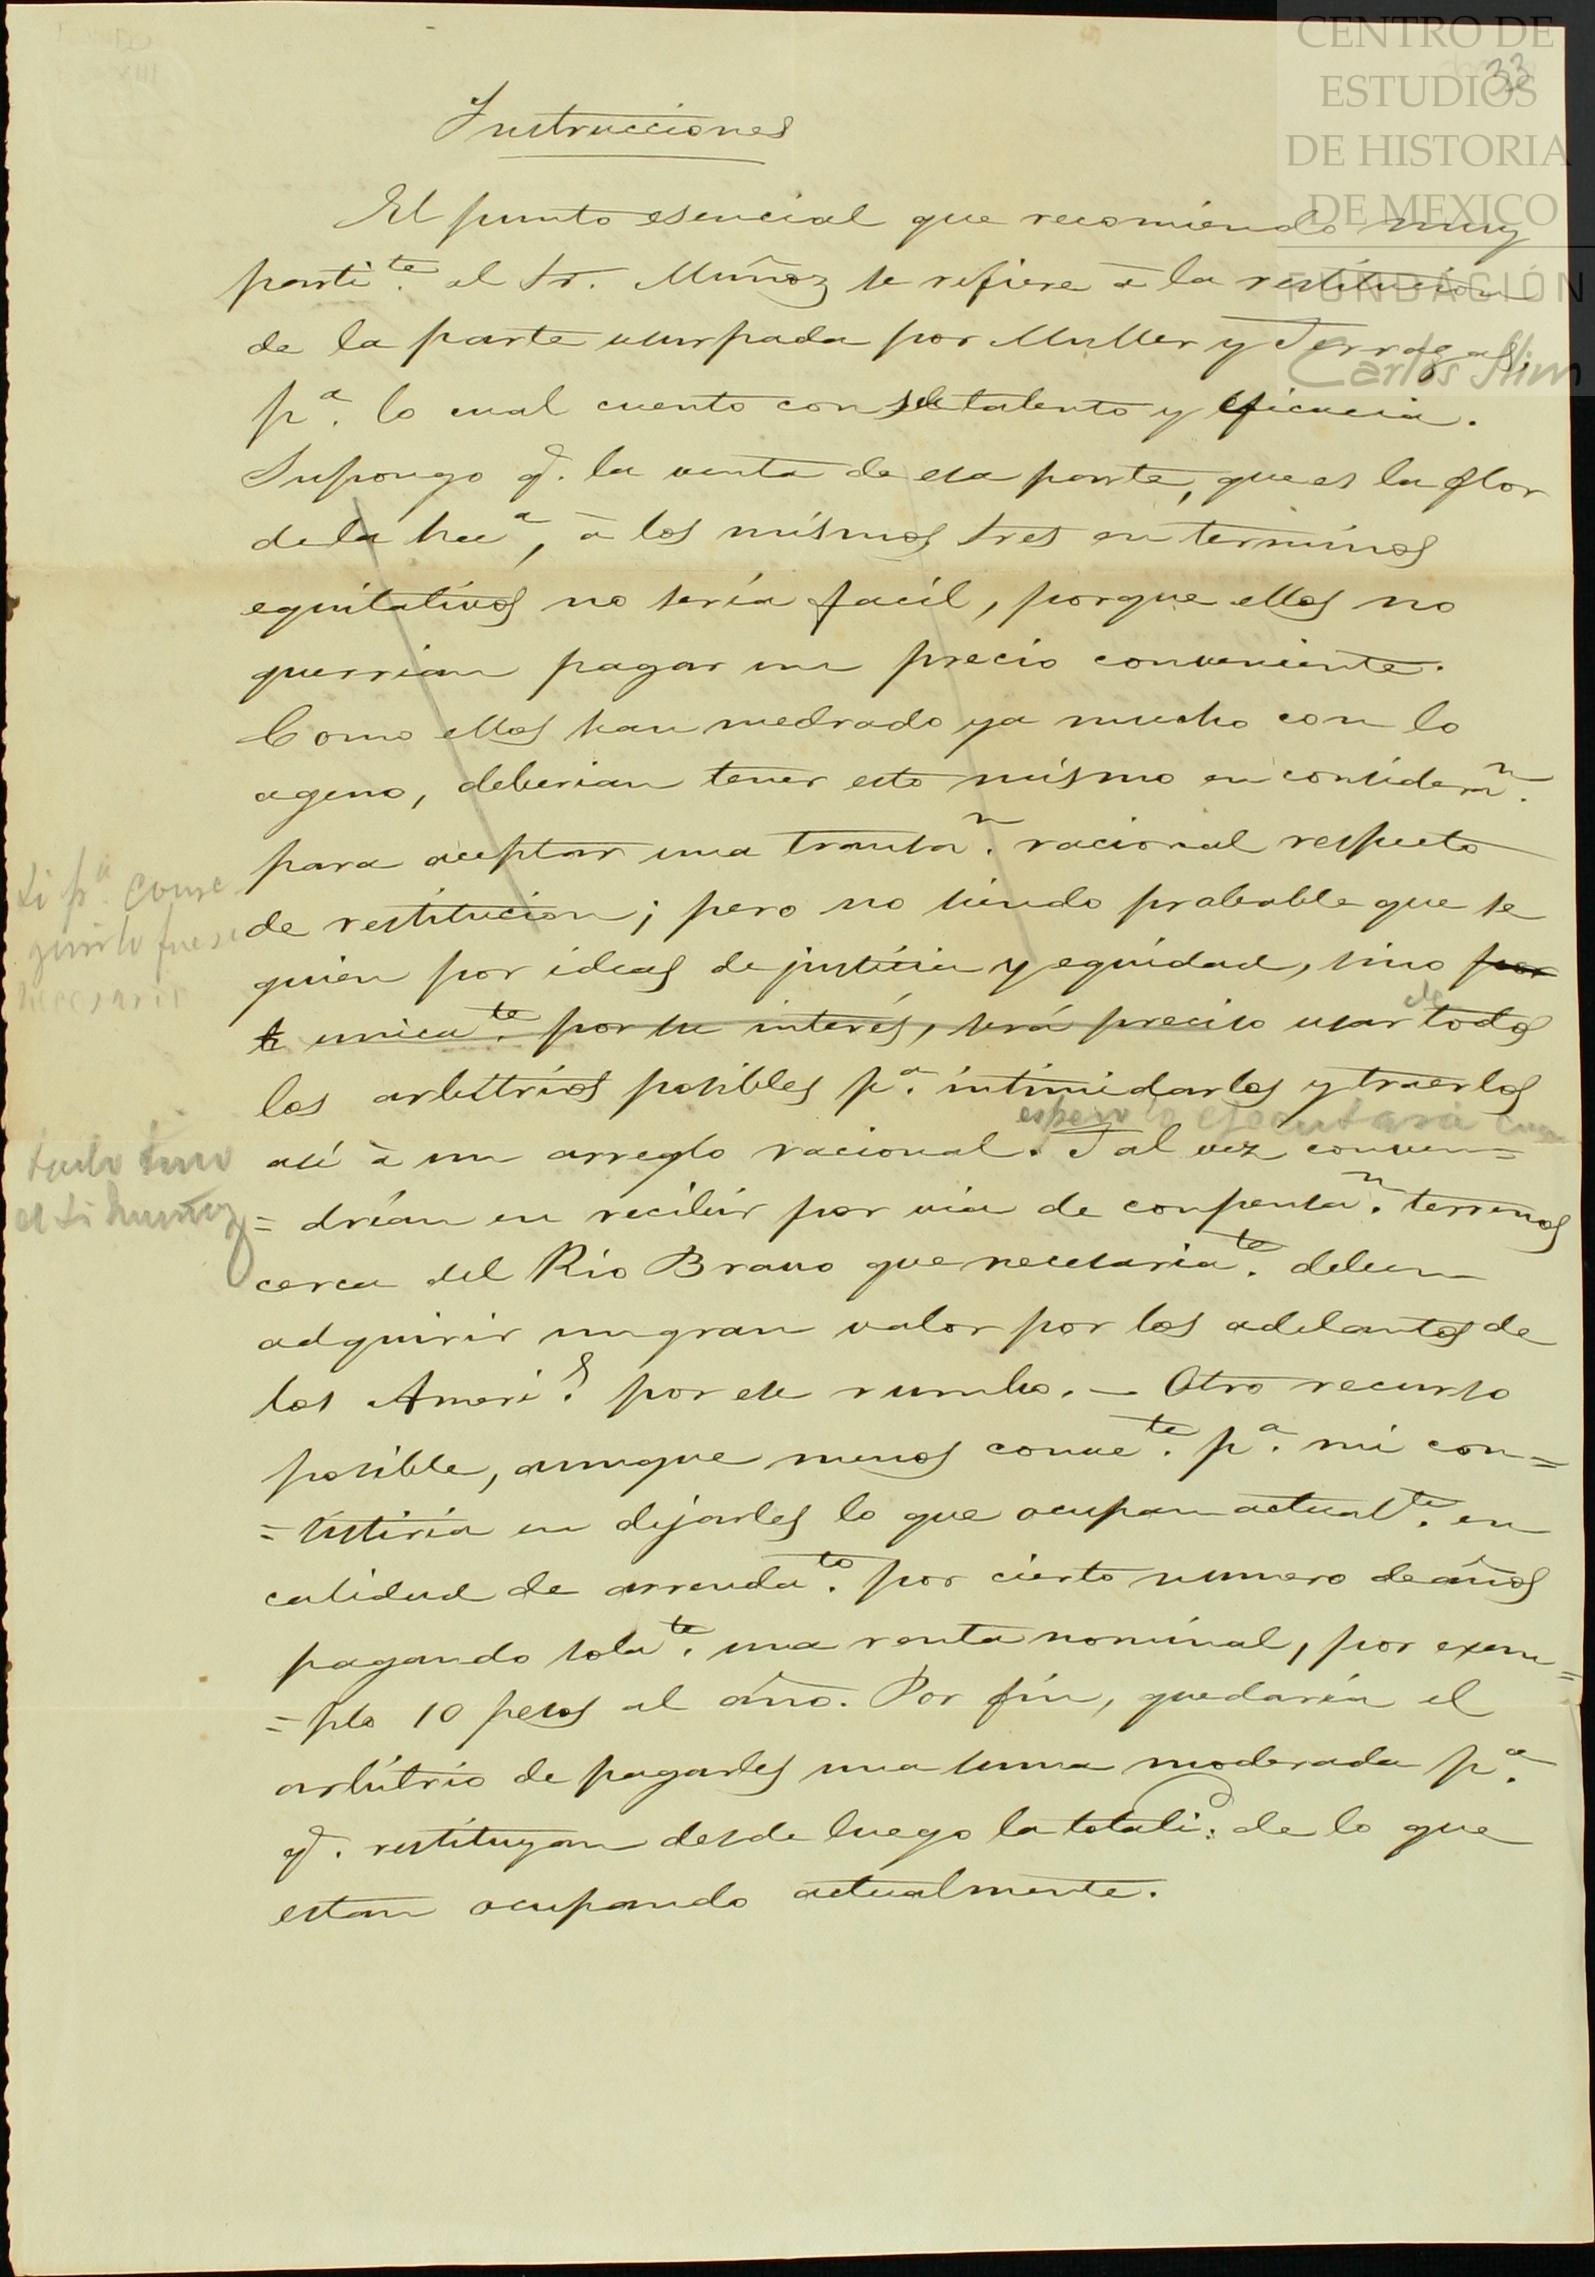 CENTRO DE
ESTUDIOS
DE HISTORIA
DE MEXICO
FUNDACIÓN
Carlos Slim
33
Instrucciones
El punto esencial que recomiendo muy
parti.te al Sr. Muñoz se refiere à la restitucion
de la parte usurpada por Muller y Terrazas,
p.a lo cual cuento con su talento y eficacia.
Supongo q. la venta de esa parte, que es la flor
de la hac.a, à los mismos tres en terminos
equitativos no sería facil, porque ellos no
querrian pagar un precio conveniente.
Como ellos han medrado ya mucho con lo
ageno, deberian tener esto mismo en considera.n
para aceptar una transa.n racional respecto
de restitucion; pero no siendo probable que se
guien por ideas de justicia y equidad, sino por
unica.te por su interés, será preciso usar de todos
los arbitrios posibles p.a intimidarlos y traerlos
así à un arreglo racional. Tal vez conven=
=drían en recibir por via de compensa.n terrenos
cerca del Rio Bravo que necesaria.te deben
adquirir un gran valor por los adelantos de
los Ameri.s por ese rumbo. — Otro recurso
posible, aunque menos conve.te p.a mi con=
=sistiria en dejarles lo que ocupan actual.te en
calidad de arrenda.to por cierto numero de años
pagando sola.te una renta nominal, por exem=
=plo 10 pesos al año. Por fin, quedaría el
arbitrio de pagarles una suma moderada p.a
q. restituyan desde luego la totali: de lo que
estan ocupando actualmente.
si p.a conse
guirlo fuese
necesario
espero lo ejecutará con
tanto tino
el Sr Muñoz